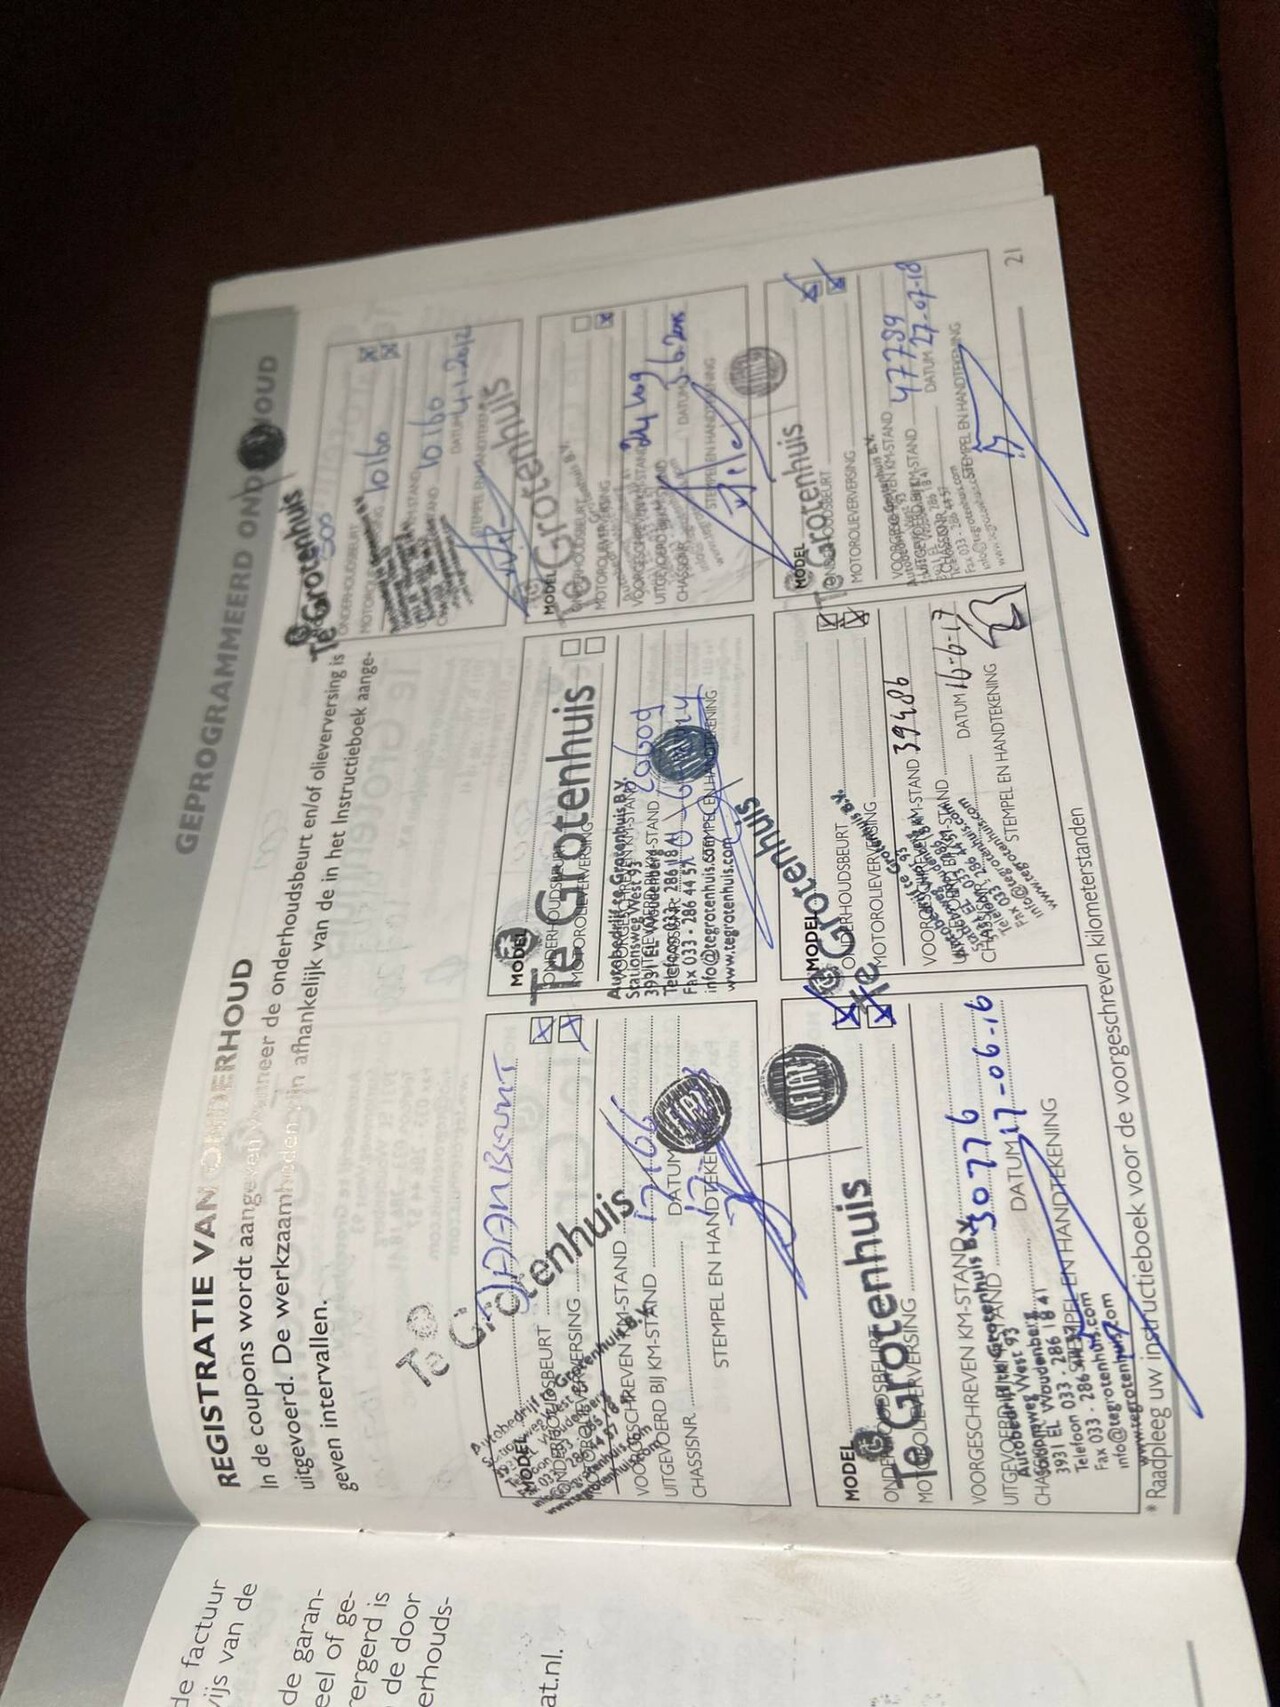 GEPROGRAMMEERD ONDERHOUD
REGISTRATIE VAN ONDERHOUD
In de coupons wordt aangegeven wanneer de onderhoudsbeurt en/of olieverversing is
uitgevoerd. De werkzaamheden zijn afhankelijk van de in het Instructieboek aange-
geven intervallen.
Te Grotenhuis
500
ONDERHOUDSBEURT
10160
10160
DATUM 4.1.2012
Te Grotenhuis
Te Grotenhuis
Autobedrijf te Grotenhuis B.V.
Stationsweg West 93
3931 EL Woudenberg
Telefoon 033 - 286 18 41
Fax 033 - 286 44 57
info@tegrotenhuis.com
www.tegrotenhuis.com
MODEL
ONDERHOUDSBEURT
MOTOROLIEVERVERSING
VOORGESCHREVEN KM-STAND
UITGEVOERD BIJ KM-STAND 17166
CHASSISNR.
DATUM
STEMPEL EN HANDTEKENING
FIAT
MODEL
Te Grotenhuis
ONDERHOUDSBEURT
MOTOROLIEVERVERSING
Autobedrijf te Grotenhuis B.V.
Stationsweg West 93
3931 EL Woudenberg
Telefoon 033 - 286 18 41
Fax 033 - 286 44 57
info@tegrotenhuis.com
www.tegrotenhuis.com
20609
STEMPEL EN HANDTEKENING
MODEL
Te Grotenhuis
ONDERHOUDSBEURT
MOTOROLIEVERVERSING
VOORGESCHREVEN KM-STAND
UITGEVOERD BIJ KM-STAND
CHASSISNR.
DATUM
STEMPEL EN HANDTEKENING
MODEL
Te Grotenhuis
ONDERHOUDSBEURT
MOTOROLIEVERVERSING
VOORGESCHREVEN KM-STAND
UITGEVOERD BIJ KM-STAND 30776
Autobedrijf te Grotenhuis B.V.
Stationsweg West 93
3931 EL Woudenberg
Telefoon 033 - 286 18 41
Fax 033 - 286 44 57
info@tegrotenhuis.com
www.tegrotenhuis.com
CHASSISNR.
DATUM 17-06-16
STEMPEL EN HANDTEKENING
FIAT
MODEL
Te Grotenhuis
ONDERHOUDSBEURT
MOTOROLIEVERVERSING
VOORGESCHREVEN KM-STAND 39486
UITGEVOERD BIJ KM-STAND
CHASSISNR.
DATUM 16-6-17
STEMPEL EN HANDTEKENING
info@tegrotenhuis.com
www.tegrotenhuis.com
MODEL
Te Grotenhuis
ONDERHOUDSBEURT
MOTOROLIEVERVERSING
VOORGESCHREVEN KM-STAND
UITGEVOERD BIJ KM-STAND 47739
CHASSISNR.
DATUM 27-07-18
STEMPEL EN HANDTEKENING
* Raadpleeg uw instructieboek voor de voorgeschreven kilometerstanden
21
de factuur
ijs van de
de garan-
eel of ge-
rergerd is
de door
erhouds-
at.nl.